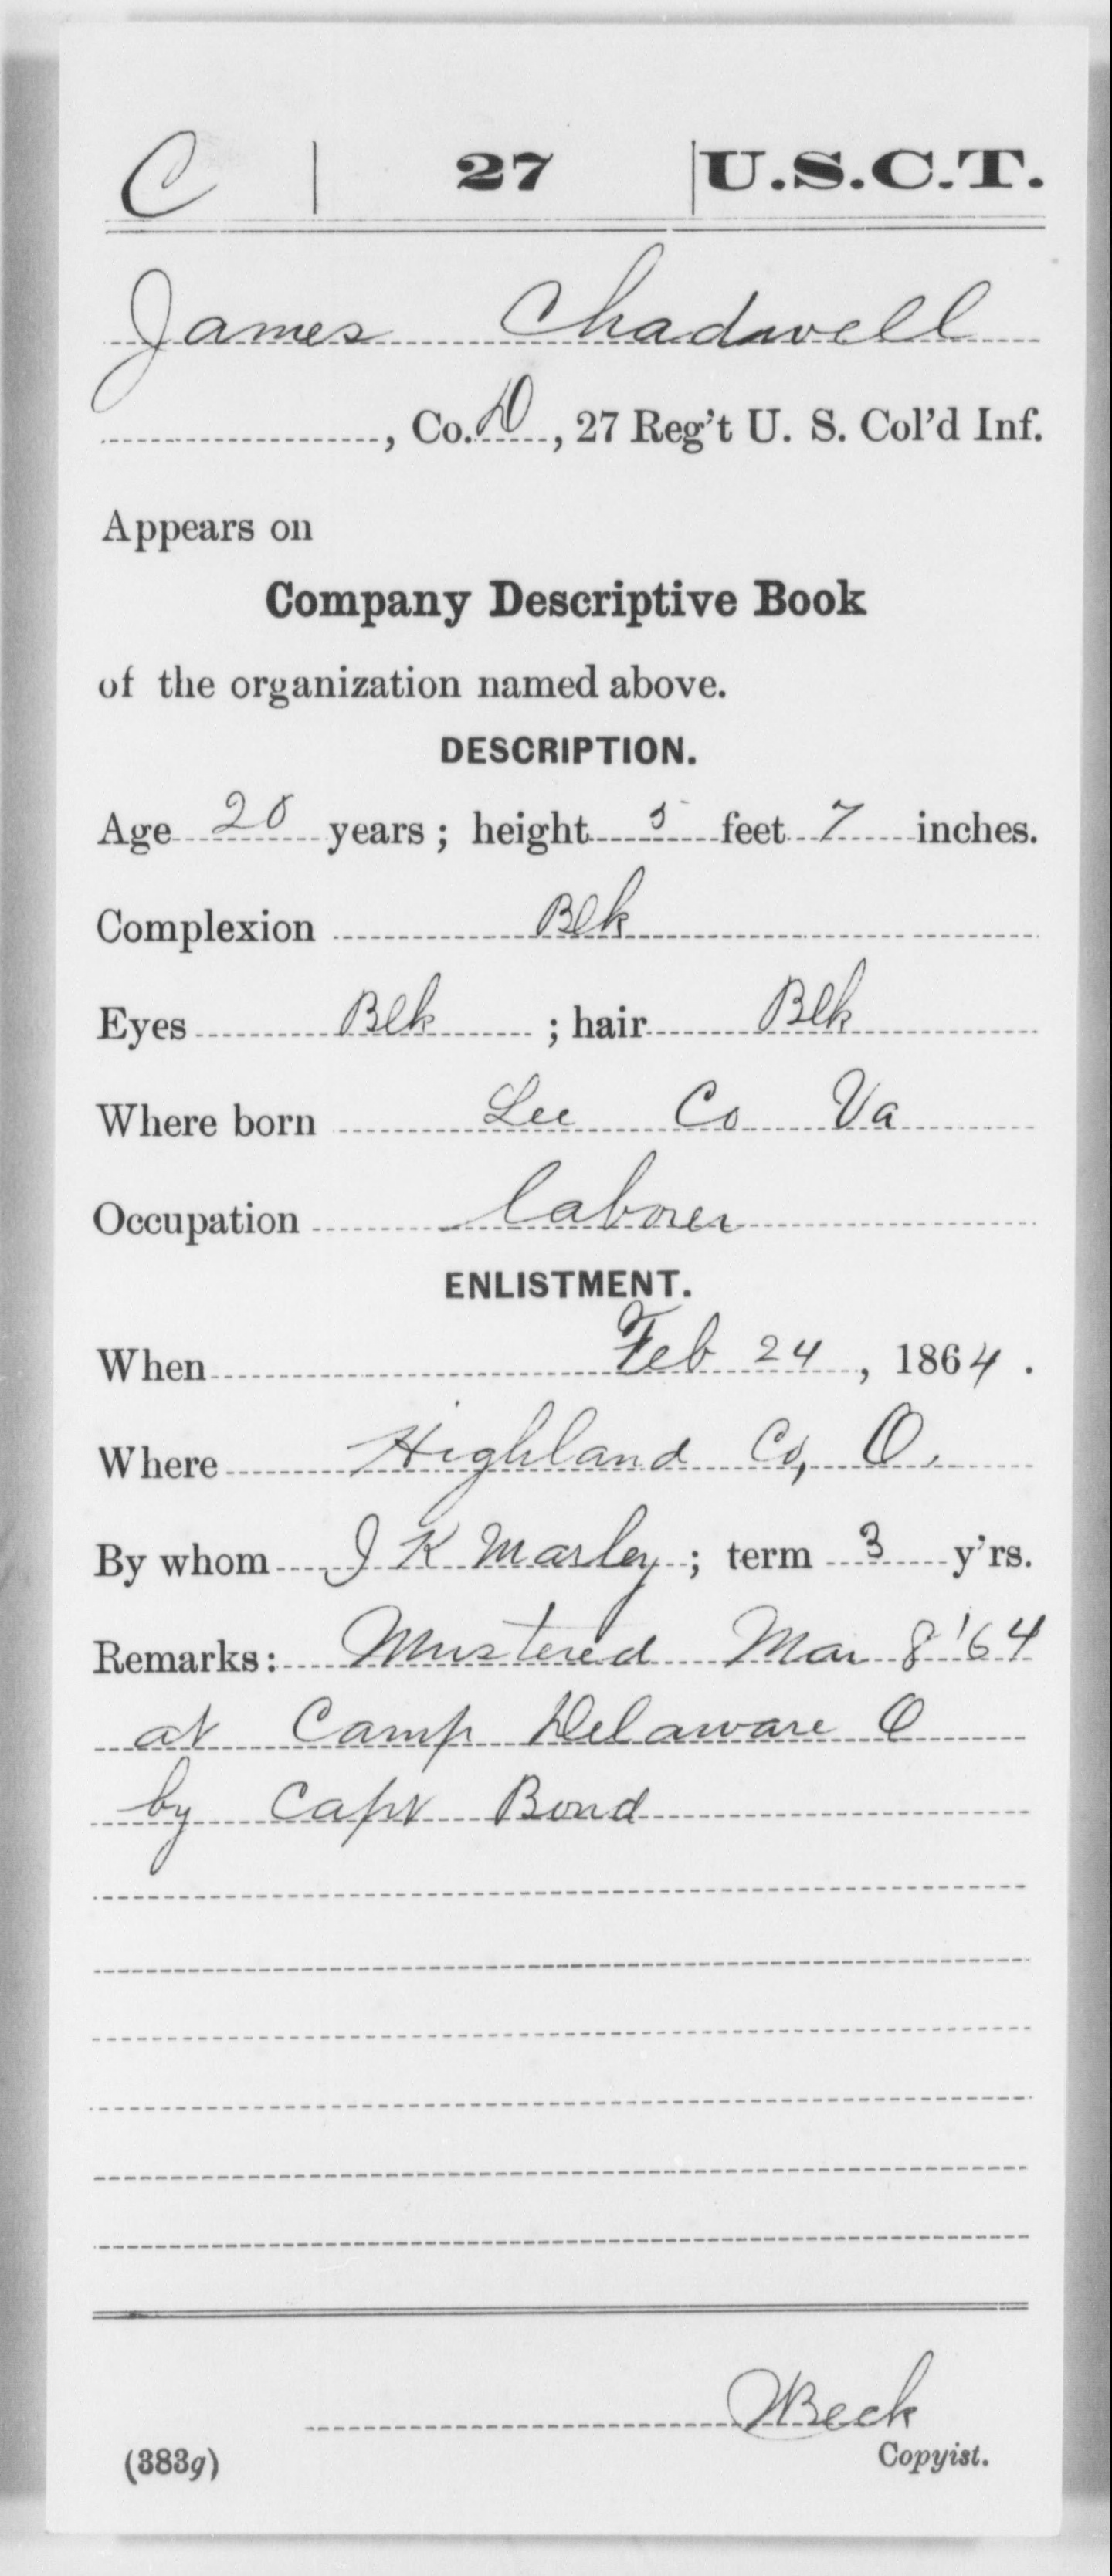 C | 27 | U.S.C.T.
James Chadwell
, Co. D, 27 Reg't U. S. Col'd Inf.
Appears on
Company Descriptive Book
of the organization named above.
DESCRIPTION.
Age 20 years; height 5 feet 7 inches.
Complexion Blk
Eyes Blk ; hair Blk
Where born Lee Co Va
Occupation laborer
ENLISTMENT.
When Feb 24, 1864.
Where Highland Co, O.
By whom J K Marley; term 3 y'rs.
Remarks: Mustered Mar 8 '64
at Camp Delaware O
by Capt Bond
Beck
(383g) Copyist.